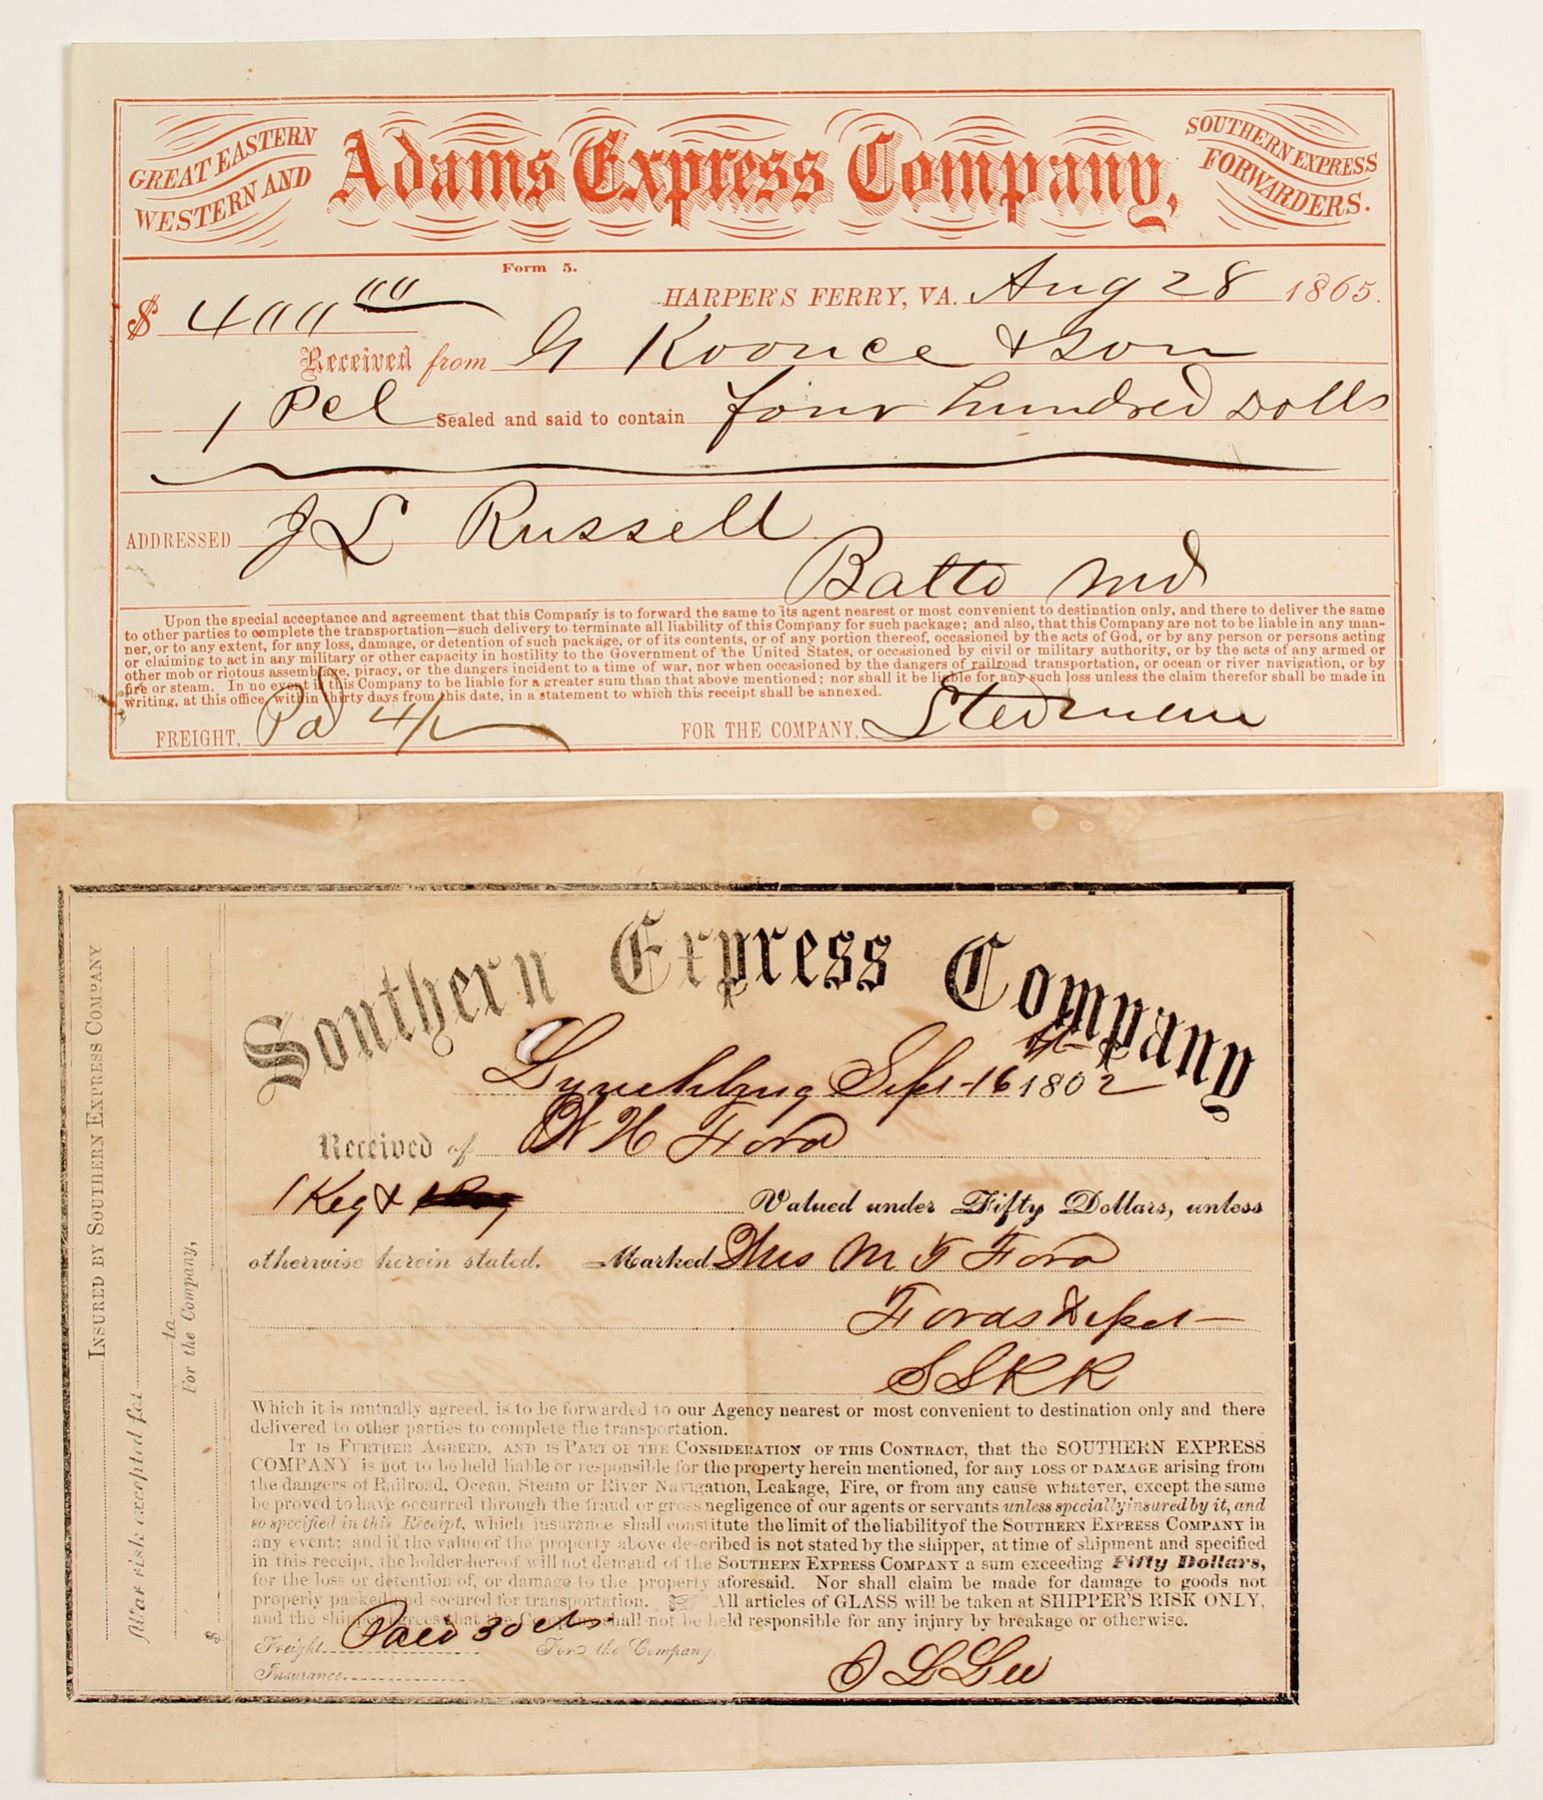 GREAT EASTERN
WESTERN AND
Adams Express Company,
SOUTHERN EXPRESS
FORWARDERS.
Form 5.
$ 400 00 HARPER'S FERRY, VA. Aug 28 1865.
Received from G Koonce & Son
1 Pcl Sealed and said to contain four hundred Dolls
ADDRESSED J L Russell
Balto Md
Upon the special acceptance and agreement that this Company is to forward the same to its agent nearest or most convenient to destination only, and there to deliver the same
to other parties to complete the transportation—such delivery to terminate all liability of this Company for such package; and also, that this Company are not to be liable in any man-
ner, or to any extent, for any loss, damage, or detention of such package, or of its contents, or of any portion thereof, occasioned by the acts of God, or by any person or persons acting
or claiming to act in any military or other capacity in hostility to the Government of the United States, or occasioned by civil or military authority, or by the acts of any armed or
other mob or riotous assemblage, piracy, or the dangers incident to a time of war, nor when occasioned by the dangers of railroad transportation, or ocean or river navigation, or by
fire or steam. In no event is this Company to be liable for a greater sum than that above mentioned; nor shall it be liable for any such loss unless the claim therefor shall be made in
writing, at this office, within thirty days from this date, in a statement to which this receipt shall be annexed.
FREIGHT, Pd 4/ FOR THE COMPANY, Stedman
INSURED BY SOUTHERN EXPRESS COMPANY
War risk excepted for
to
For the Company,
$
Southern Express Company
Lynchburg Sept 16 1862
Received of W H Ford
1 Keg & Valued under Fifty Dollars, unless
otherwise herein stated. Marked Mrs M F Ford
Fords Depot
S S R R
Which it is mutually agreed, is to be forwarded to our Agency nearest or most convenient to destination only and there
delivered to other parties to complete the transportation.
IT IS FURTHER AGREED, AND IS PART OF THE CONSIDERATION OF THIS CONTRACT, that the SOUTHERN EXPRESS
COMPANY is not to be held liable or responsible for the property herein mentioned, for any LOSS OR DAMAGE arising from
the dangers of Railroad, Ocean, Steam or River Navigation, Leakage, Fire, or from any cause whatever, except the same
be proved to have occurred through the fraud or gross negligence of our agents or servants unless specially insured by it, and
so specified in this Receipt, which insurance shall constitute the limit of the liability of the SOUTHERN EXPRESS COMPANY in
any event; and if the value of the property above described is not stated by the shipper, at time of shipment and specified
in this receipt, the holder hereof will not demand of the SOUTHERN EXPRESS COMPANY a sum exceeding Fifty Dollars,
for the loss or detention of, or damage to the property aforesaid. Nor shall claim be made for damage to goods not
properly packed and secured for transportation. All articles of GLASS will be taken at SHIPPER'S RISK ONLY,
and the shipper agrees that the Company shall not be held responsible for any injury by breakage or otherwise.
Freight Paid 30 cts For the Company,
Insurance O L Lee